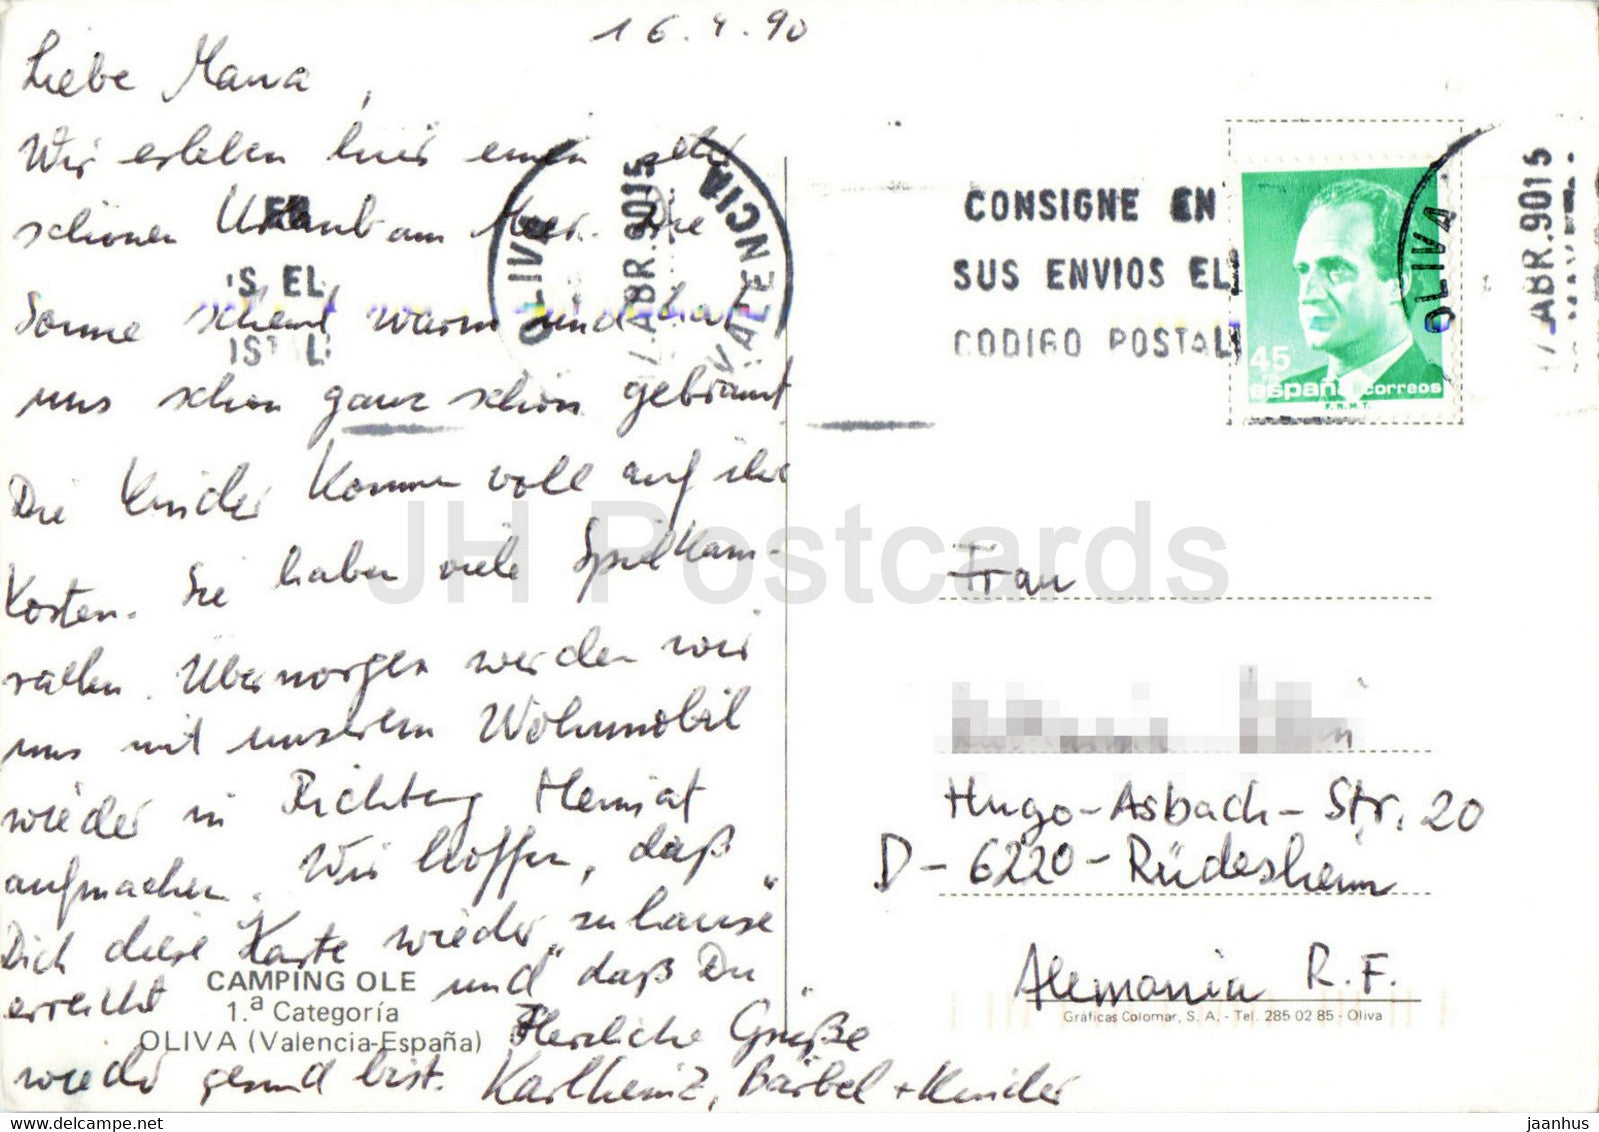 16.4.90
Liebe Mama,
Wir erleben hier einen sehr
schönen Urlaub am Meer. Die
Sonne scheint warm und hat
uns schon ganz schön gebräunt
Die Kinder kommen voll auf ihre
Kosten. Sie haben viele Spielkam-
raden. Übermorgen werden wir
uns mit unserem Wohnmobil
wieder in Richtung Heimat
aufmachen. Wir hoffen, daß
Dich diese Karte wieder „zuhause"
erreicht und daß Du
wieder gesund bist.
Herzliche Grüße
Karlheinz, Bärbel + Kinder
CAMPING OLE
1.ª Categoría
OLIVA (Valencia-España)
OLIVA
VALENCIA
ABR.9015
IS EL
CONSIGNE EN
SUS ENVIOS EL
CODIGO POSTAL
45
españa correos
F.N.M.T.
OLIVA
17 ABR.9015
Frau
Hugo-Asbach-Str. 20
D-6220-Rüdesheim
Alemania R.F.
Gráficas Colomar, S. A. - Tel. 285 02 85 - Oliva
JH Postcards
jaanhus - delcampe.net